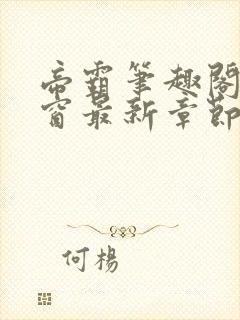 帝霸筆趣閣
窗最新章節
何楊